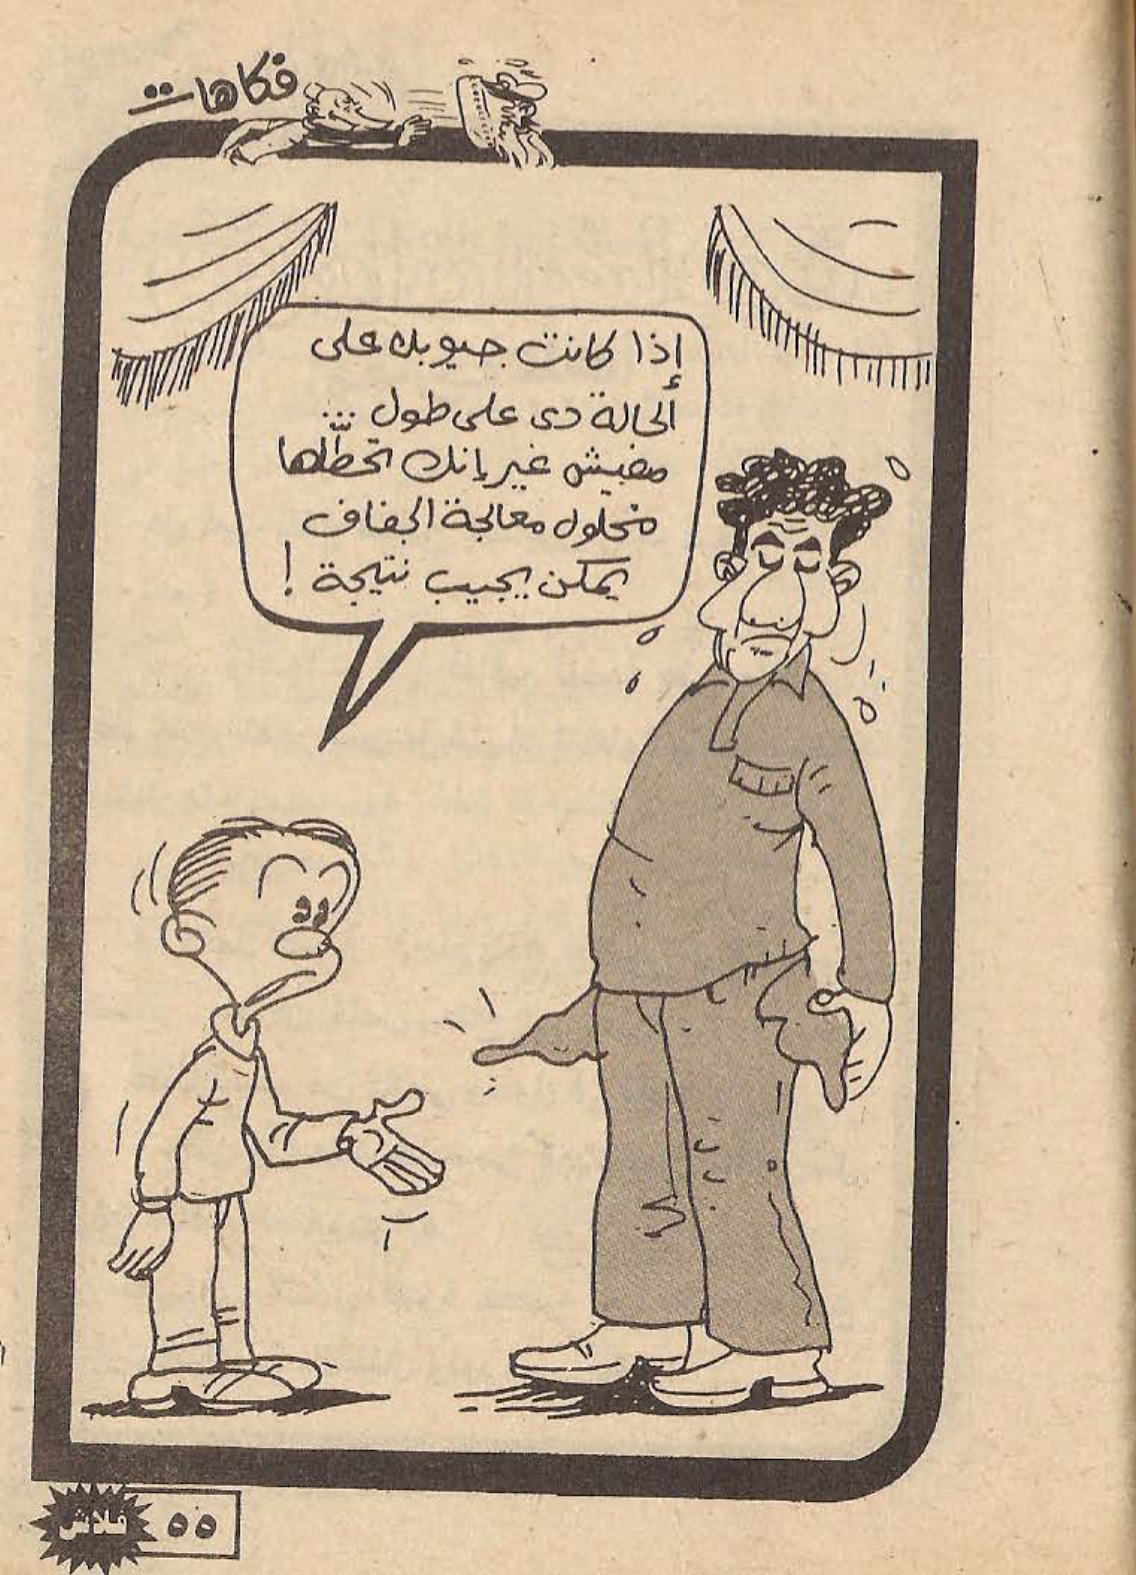 فكاهات
إذا كانت جيوبك على
الحالة دى على طول ...
مفيش غير إنك تحطّلها
محلول معالجة الجفاف
يمكن يجيب نتيجة !
فلاش ٥٥